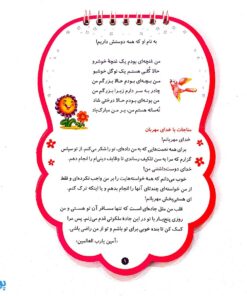 به نام او که همه دوستش داریم!
من غنچه‌ای بودم یک غنچهٔ خوشرو
حالا گلی هستم یک نوگل خوشبو
من بوته‌ای بودم حالا بزرگم من
چادر به سر دارم زیرا بزرگم من
من دانه‌ای بودم حالا درختی شاد
نُه‌ساله هستم من، بر من مبارک‌باد
مناجات با خدای مهربان
خدای مهربانم!
برای همه نعمت‌هایی که به من داده‌ای، تو را شکر می‌کنم. از تو سپاس
گزارم که مرا به سن تکلیف رساندی تا وظایف دینی‌ام را انجام بدهم.
خوب می‌دانم که همهٔ خواسته‌هایت را بر من واجب نکرده‌ای و فقط
از من خواسته‌ای چندتای آنها را انجام بدهم و یا اینکه ترک کنم.
ای هستی‌بخش مهربانم!
قلب من مثل جاده‌ای است که تنها مسافر آن تو هستی و من
روزی پنج‌بار با تو در این جاده ملکوتی قدم می‌زنم، پس مرا
کمک کن تا بنده خوبی برای تو باشم و تو از من راضی باشی.
آمین یارب العالمین.
۱